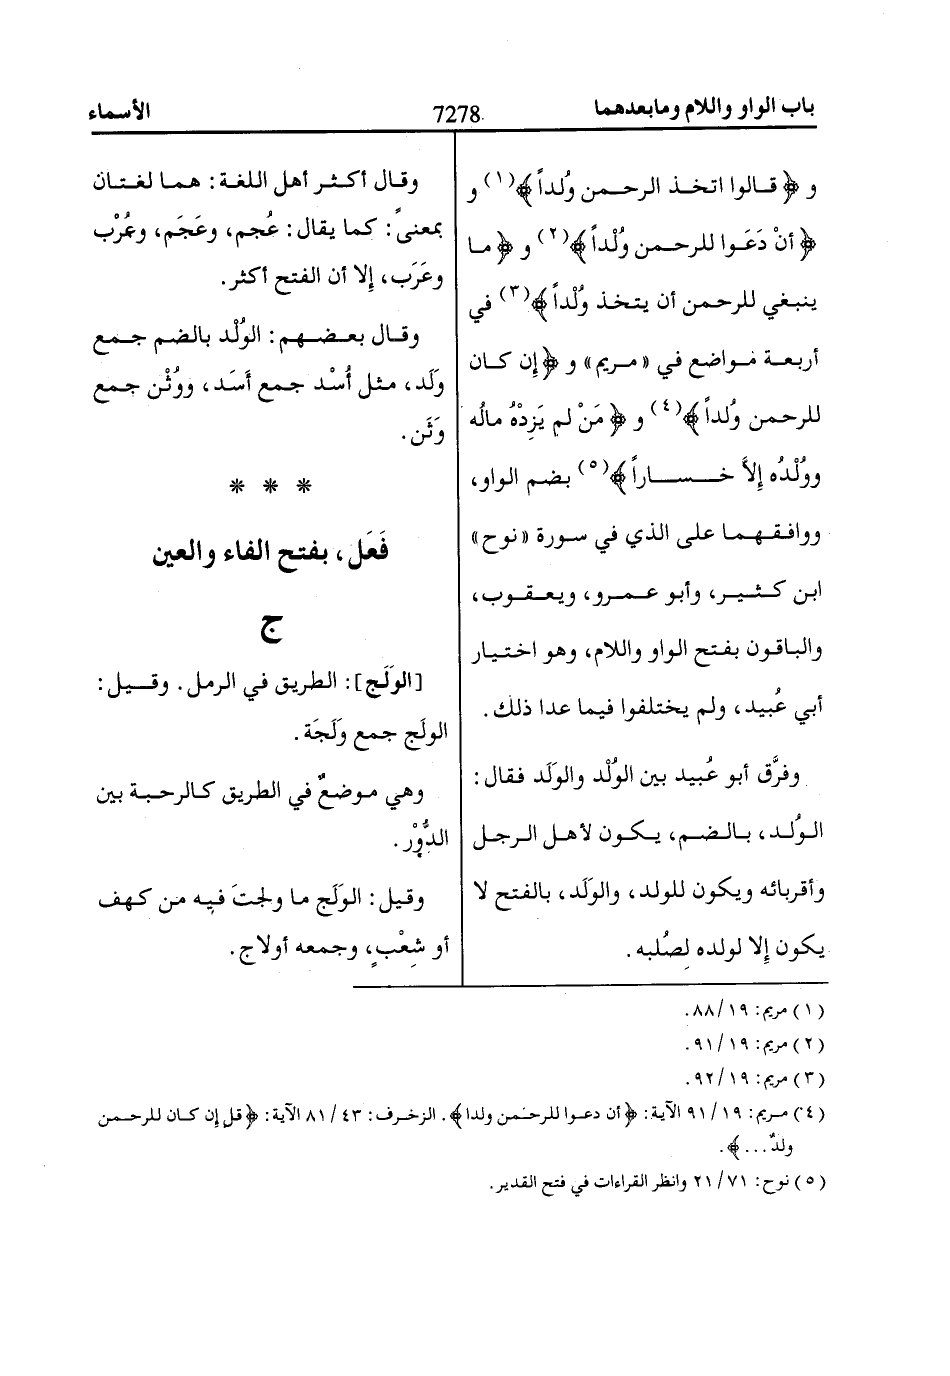 باب الواو واللام ومابعدهما
7278
الأسماء
و ﴿ قالوا اتخذ الرحمن وُلداً ﴾(١) و
﴿ أنْ دَعَوا للرحمن وُلْداً ﴾(٢) و ﴿ ما
ينبغي للرحمن أن يتخذ وُلْداً ﴾(٣) في
أربعة مواضع في «مريم» و ﴿ إن كان
للرحمن وُلداً ﴾(٤) و ﴿ مَنْ لم يَزِدْهُ مالُه
ووُلْدُه إلاَّ خساراً ﴾(٥) بضم الواو،
ووافقهما على الذي في سورة «نوح»
ابن كثير، وأبو عمرو، ويعقوب،
والباقون بفتح الواو واللام، وهو اختيار
أبي عُبيد، ولم يختلفوا فيما عدا ذلك.
وفرَّق أبو عُبيد بين الوُلْد والوَلَد فقال:
الوُلد، بالضم، يكون لأهل الرجل
وأقربائه ويكون للولد، والوَلَد، بالفتح لا
يكون إلا لولده لِصُلبه.
وقال أكثر أهل اللغة: هما لغتان
بمعنىً: كما يقال: عُجم، وعَجَم، وعُرْب
وعَرَب، إلا أن الفتح أكثر.
وقال بعضهم: الوُلْد بالضم جمع
وَلَد، مثل أُسْد جمع أَسَد، ووُثْن جمع
وَثَن.
* * *
فَعَل، بفتح الفاء والعين
ج
[الوَلَج]: الطريق في الرمل. وقيل:
الولَج جمع وَلَجَة.
وهي موضعٌ في الطريق كالرحبة بين
الدُّوْر.
وقيل: الوَلَج ما ولجتَ فيه من كهف
أو شِعْبٍ، وجمعه أولاج.
(١) مريم: ١٩/ ٨٨.
(٢) مريم: ١٩/ ٩١.
(٣) مريم: ١٩/ ٩٢.
(٤) مريم: ١٩/ ٩١ الآية: ﴿ أن دعوا للرحمن ولدا ﴾. الزخرف: ٤٣/ ٨١ الآية: ﴿ قل إن كان للرحمن
ولدٌ... ﴾.
(٥) نوح: ٧١/ ٢١ وانظر القراءات في فتح القدير.